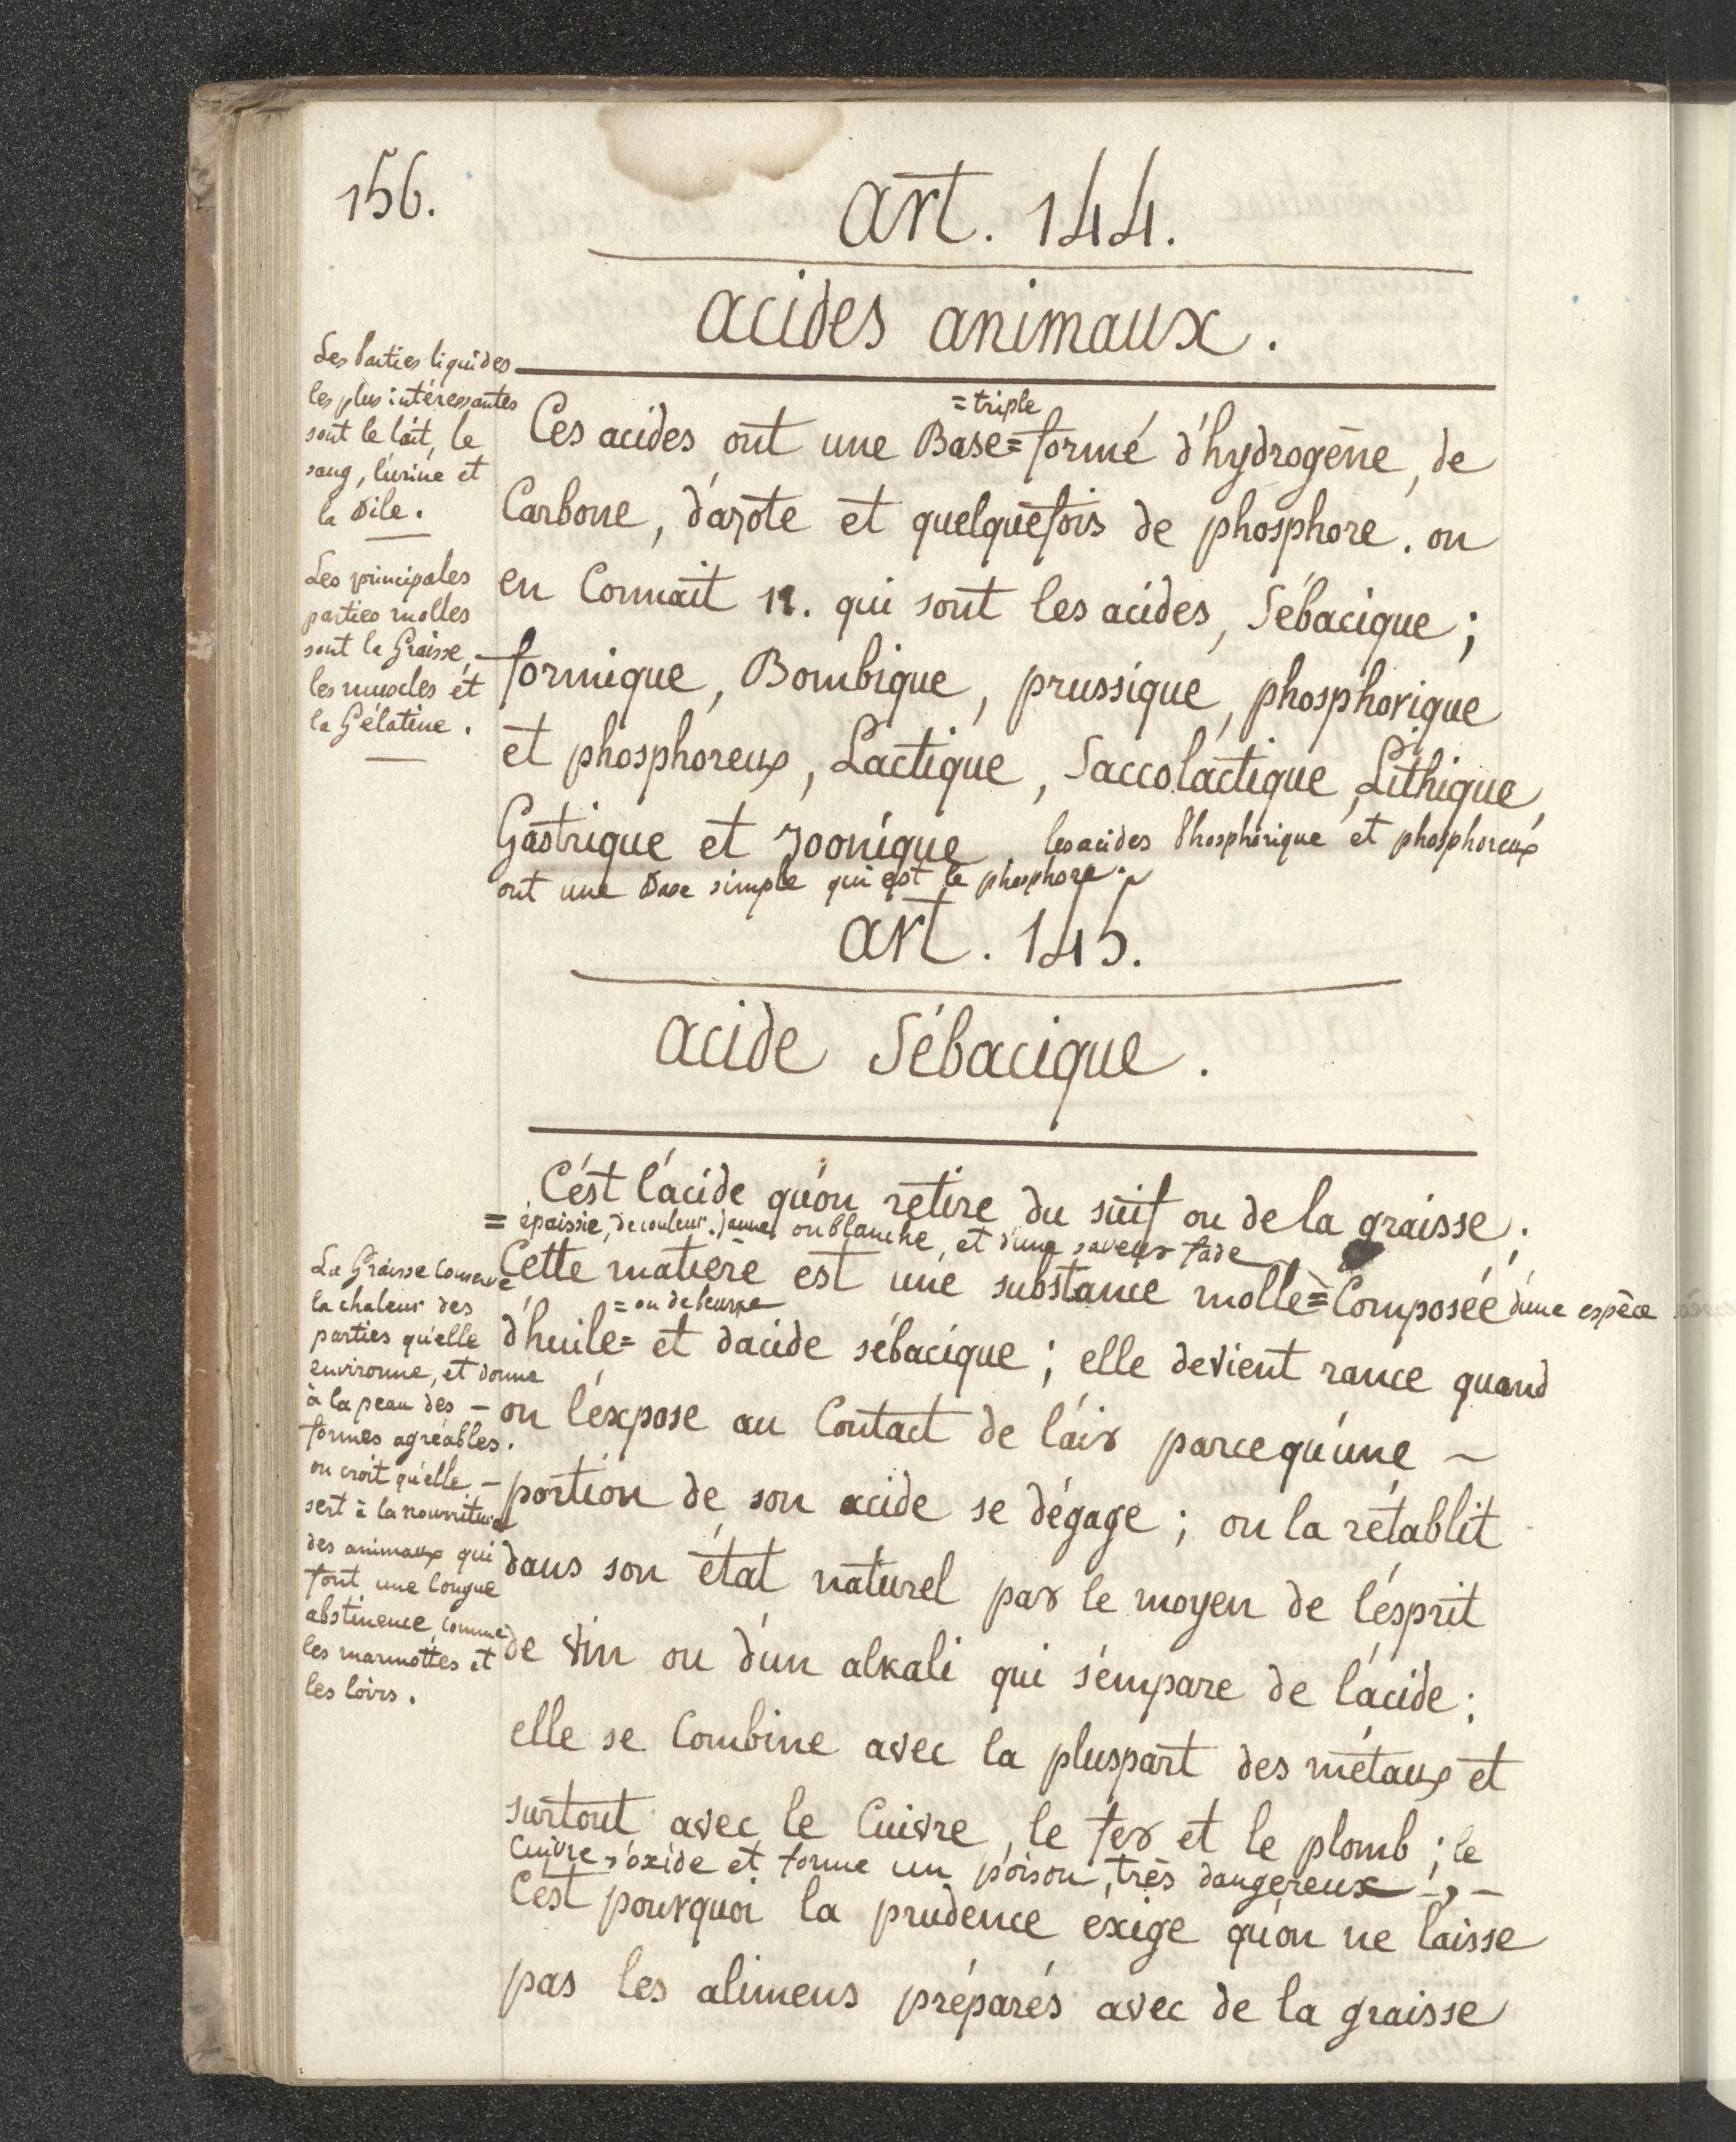 156.
art. 144.
acides animaux.
Les parties liquides
les plus intéressantes
sont le lait, le
sang, l'urine et
la Bile.
Les principales
parties molles
sont la Graisse,
les muscles et
la Gélatine.
= triple
Ces acides ont une Base = formé d'hydrogène, de
Carbone, d'azote et quelquefois de phosphore. on
en Connait 11. qui sont les acides, Sébacique ;
formique, Bombique, prussique, phosphorique
et phosphoreux, Lactique, Saccolactique, Lithique,
Gastrique et zoonique, les acides Phosphorique et phosphoreux
ont une Base simple qui est le phosphore.
art. 145.
acide Sébacique.
C'est l'acide qu'on retire du suif ou de la graisse ;
= épaissie, de couleur jaune, ou blanche, et d'une saveur fade
Cette matière est une substance molle = Composée d'une espèce
= ou de beurre
d'huile = et d'acide sébacique ; elle devient rance quand
on l'expose au Contact de l'air parcequ'une -
portion de son acide se dégage ; on la rétablit
dans son état naturel par le moyen de l'esprit
de vin ou d'un alkali qui s'empare de l'acide ;
elle se Combine avec la pluspart des métaux et
surtout avec le Cuivre, le fer et le plomb ; le
Cuivre s'oxide et forme un poison très dangereux ; -
C'est pourquoi la prudence exige qu'on ne laisse
pas les alimens préparés avec de la graisse
La Graisse Conserve
la chaleur des
parties qu'elle
environne, et donne
à la peau des -
formes agréables.
on croit qu'elle -
sert à la nourriture
des animaux qui
font une longue
abstinence, comme
les marmottes et
les loirs.